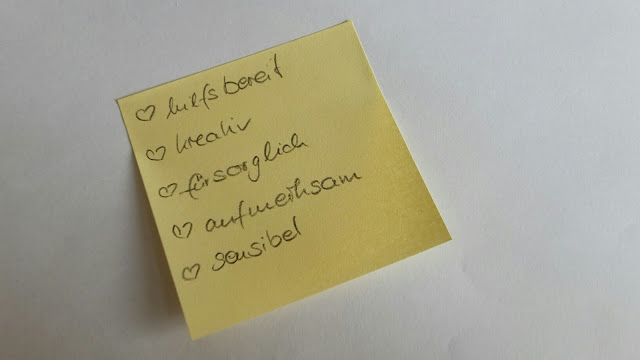 ♡ hilfsbereit
♡ kreativ
♡ fürsorglich
♡ aufmerksam
♡ sensibel